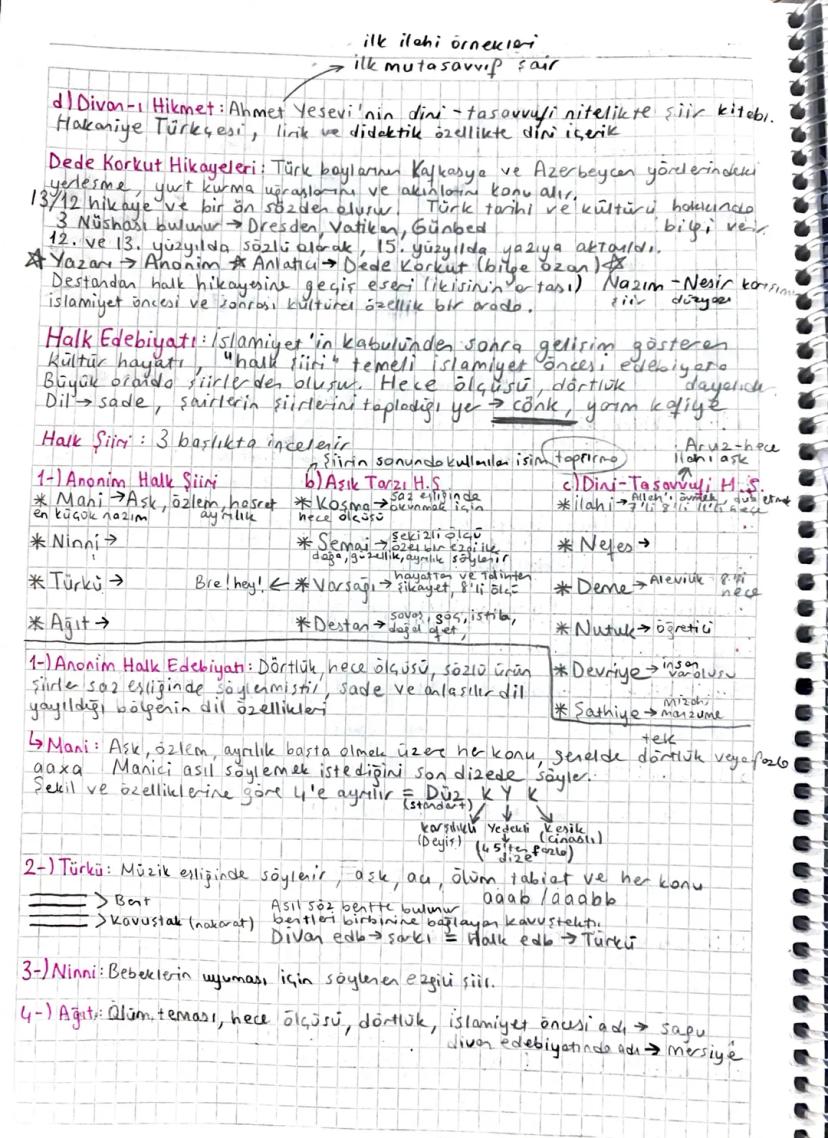 ilk ilahi örnekleri
ilk mutasavvıf şair
d) Divan-ı Hikmet: Ahmet Yesevi'nin dini-tasavvufi nitelikte şiir kitabı.
Hakaniye Türkçesi, lirik ve didaktik özellikte dini içerik
Dede Korkut Hikayeleri: Türk boylarının Kafkasya ve Azerbeycan yörelerindeki
yerleşme, yurt kurma uğraşlarını ve akınlarını konu alır.
13/12 hikaye ve bir ön sözden oluşur. Türk tarihi ve kültürü hakkında
3 Nüshası bulunur → Dresden, Vatikan, Günbed bilgi verir.
12. ve 13. yüzyılda sözlü olarak, 15. yüzyılda yazıya aktarıldı.
☆ Yazarı → Anonim ☆ Anlatıcı → Dede Korkut (bilge ozan) ☆
Destandan halk hikayesine geçiş eseri (ikisinin ortası) Nazım - Nesir karışımı
islamiyet öncesi ve sonrası kültürel özellik bir arada. şiir düzyazı
Halk Edebiyatı: İslamiyet'in kabulünden sonra gelişim gösteren
kültür hayatı, "halk şiiri" temeli islamiyet öncesi edebiyata
Büyük oranda şiirlerden oluşur. Hece ölçüsü, dörtlük dayalıdır.
Dil → sade, şairlerin şiirlerini topladığı yer → cönk, yarım kafiye
Halk Şiiri: 3 başlıkta incelenir
Şiirin sonunda kullanılan isim tapşırma
Aruz-hece
ilahi aşk
1-) Anonim Halk Şiiri
* Mani → Aşk, özlem, hasret
en küçük nazım ayrılık
* Ninni →
* Türkü →
* Ağıt →
b) Aşık Tarzı H.Ş.
* Koşma → saz eşliğinde
okunmak için
hece ölçüsü
* Semai → sekizli ölçü
özel bir ezgi ile
doğa, güzellik, ayrılık söylenir
Bre! hey! ← * Varsağı → hayattan ve talihten
şikayet, 8'li ölçü
* Destan → savaş, göç, istila,
doğal afet,
c) Dini-Tasavvufi H.Ş.
* ilahi → Allah'ı övmek, dua etmek
7'li 8'li 11'li hece
* Nefes →
* Deme → Alevilik 8'li
hece
* Nutuk → öğretici
* Devriye → insan
varoluşu
* Şathiye → mizahi
manzume
1-) Anonim Halk Edebiyatı: Dörtlük, hece ölçüsü, sözlü ürün
şiirler saz eşliğinde söylenmiştir, sade ve anlaşılır dil
yayıldığı bölgenin dil özellikleri
↳ Mani: Aşk, özlem, ayrılık başta olmak üzere her konu, genelde tek dörtlük veya fazla
aaxa Manici asıl söylemek istediğini son dizede söyler.
Şekil ve özelliklerine göre 4'e ayrılır = Düz K Y K
(standart)
karşılıklı Yedekli Kesik
(Deyiş) (4 5'ten fazla dize) (cinaslı)
2-) Türkü: Müzik eşliğinde söylenir, aşk, acı, ölüm tabiat ve her konu
> Bent aaab / aaabb
Asıl söz bentte bulunur
> Kavuştak (nakarat) bentleri birbirine bağlayan kavuştaktır.
Divan edb → şarkı = Halk edb → Türkü
3-) Ninni: Bebeklerin uyuması için söylenen ezgili şiir.
4-) Ağıt: Ölüm teması, hece ölçüsü, dörtlük, islamiyet öncesi adı → sagu
divan edebiyatında adı → mersiye